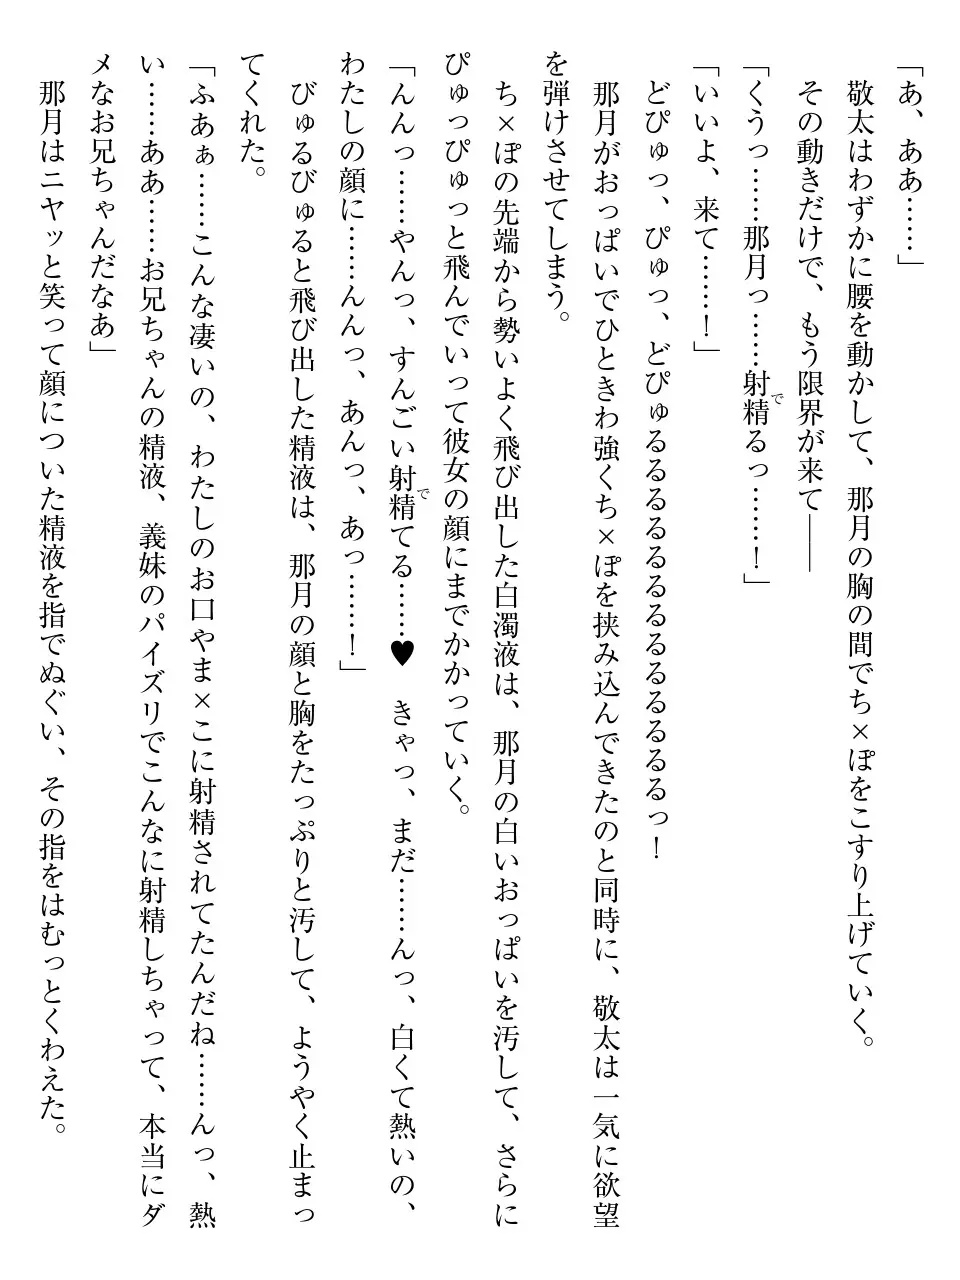 「あ、ああ……」
敬太はわずかに腰を動かして、那月の胸の間でち×ぽをこすり上げていく。
その動きだけで、もう限界が来て――
「くうっ……那月っ……射精でるっ……！」
「いいよ、来て……！」
どぴゅっ、ぴゅっ、どぴゅるるるるるるるるるるるるっ！
那月がおっぱいでひときわ強くち×ぽを挟み込んできたのと同時に、敬太は一気に欲望
を弾けさせてしまう。
ち×ぽの先端から勢いよく飛び出した白濁液は、那月の白いおっぱいを汚して、さらに
ぴゅっぴゅっと飛んでいって彼女の顔にまでかかっていく。
「んんっ……やんっ、すんごい射精でてる……♥　きゃっ、まだ……んっ、白くて熱いの、
わたしの顔に……んんっ、あんっ、あっ……！」
びゅるびゅると飛び出した精液は、那月の顔と胸をたっぷりと汚して、ようやく止まっ
てくれた。
「ふあぁ……こんな凄いの、わたしのお口やま×こに射精されてたんだね……んっ、熱
い……ああ……お兄ちゃんの精液、義妹のパイズリでこんなに射精しちゃって、本当にダ
メなお兄ちゃんだなあ」
那月はニヤッと笑って顔についた精液を指でぬぐい、その指をはむっとくわえた。